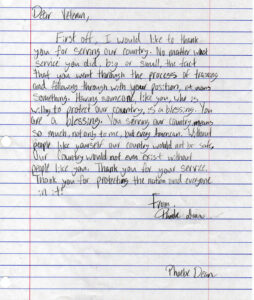 Dear Veteran,
First off, I would like to thank
you for serving our country. No matter what
service you did, big or small, the fact
that you went through the process of training
and following through with your position, means
something. Having someone, like you, who is
willing to protect our country, is a blessing. You
are a blessing. You serving our country means
so much, not only to me, but every American. Without
people like yourself our country would not be safe.
Our country would not even exist without
people like you. Thank you for your service.
Thank you for protecting the nation and everyone
in it!
From,
Phoebe Dean
Phoebe Dean